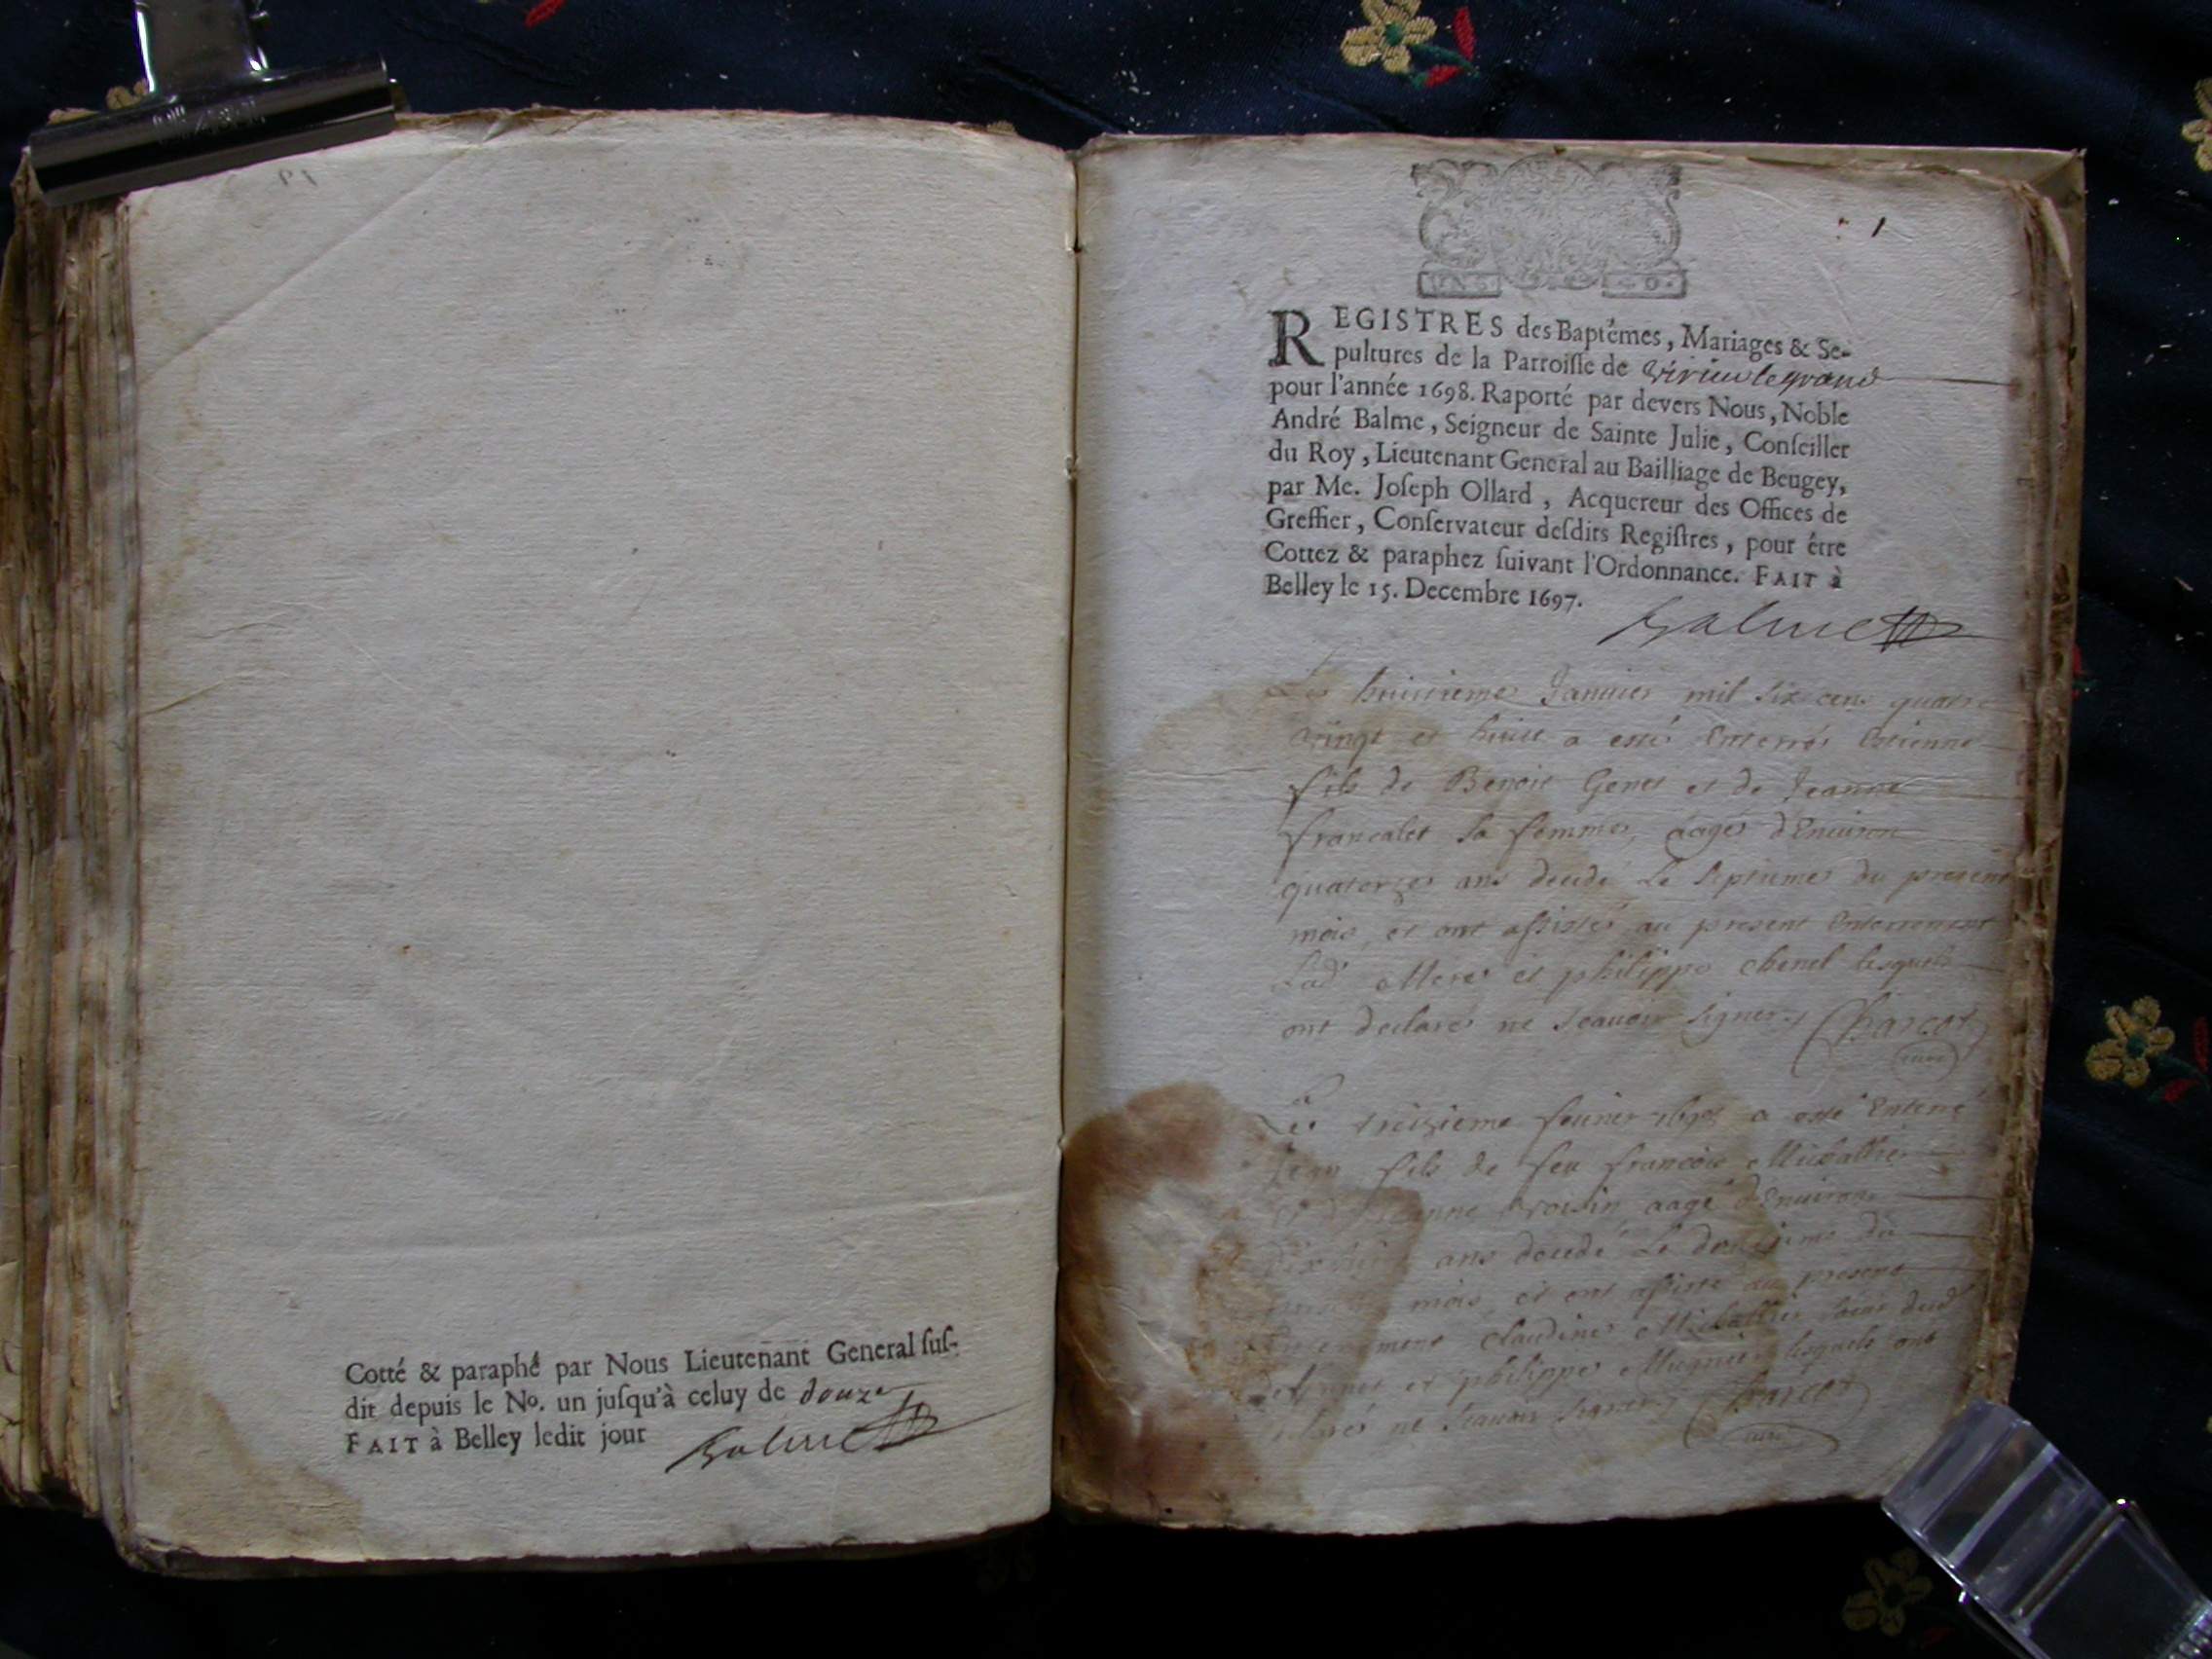 Cotté & paraphé par Nous Lieutenant General suſ-
dit depuis le No. un juſqu'à celuy de douze
FAIT à Belley ledit jour
Balme
1
REGISTRES des Baptêmes, Mariages & Se-
pultures de la Parroiſſe de Virieu le grand
pour l'année 1698. Raporté par devers Nous, Noble
André Balme, Seigneur de Sainte Julie, Conſeiller
du Roy, Lieutenant General au Bailliage de Beugey,
par Me. Joſeph Ollard, Acquereur des Offices de
Greffier, Conſervateur deſdits Regiſtres, pour être
Cottez & paraphez ſuivant l'Ordonnance. FAIT à
Belley le 15. Decembre 1697.
Balme
Le huictieme Januier mil six cens quatre
vingt et huict a esté Enterré Estienne
fils de Benoit Genet et de Jeanne
francalet sa femme, aagé d'Enuiron
quatorze ans decedé Le septieme du present
mois, et ont assisté au present Enterrement
Lad Mere et philippe chenel lesquels
ont declaré ne scauoir signer Charcot
curé
Le treizieme feurier 1698 a esté Enterré
Jean fils de feu francois
et voisin aagé d'Enuiron
ans decedé Le du
mois, et ont assisté au present
claudine
et philippe Mugnier lesquels ont
ne scauoir signer Charcot
curé